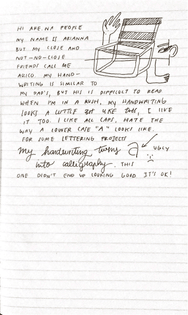 HI ARE NA PEOPLE
MY NAME IS ARIANNA
BUT MY CLOSE AND
NOT-NO-CLOSE
FRIENDS CALL ME
MY HAND-
WRITING IS SIMILAR TO
MY PAP'S, BUT HIS IS DIFFICULT TO READ
WHEN I'M IN A RUSH, MY HANDWRITING
LOOKS A LITTLE BIT LIKE THIS, I LIKE
IT TOO. I LIKE ALL CAPS, HATE THE
WAY A LOWER CASE "A" LOOKS LIKE.
FOR SOME LETTERING PROJECTS
my handwriting turns a UGLY
into calligraphy. THIS
ONE DIDN'T END UP LOOKING GOOD IT'S OK!